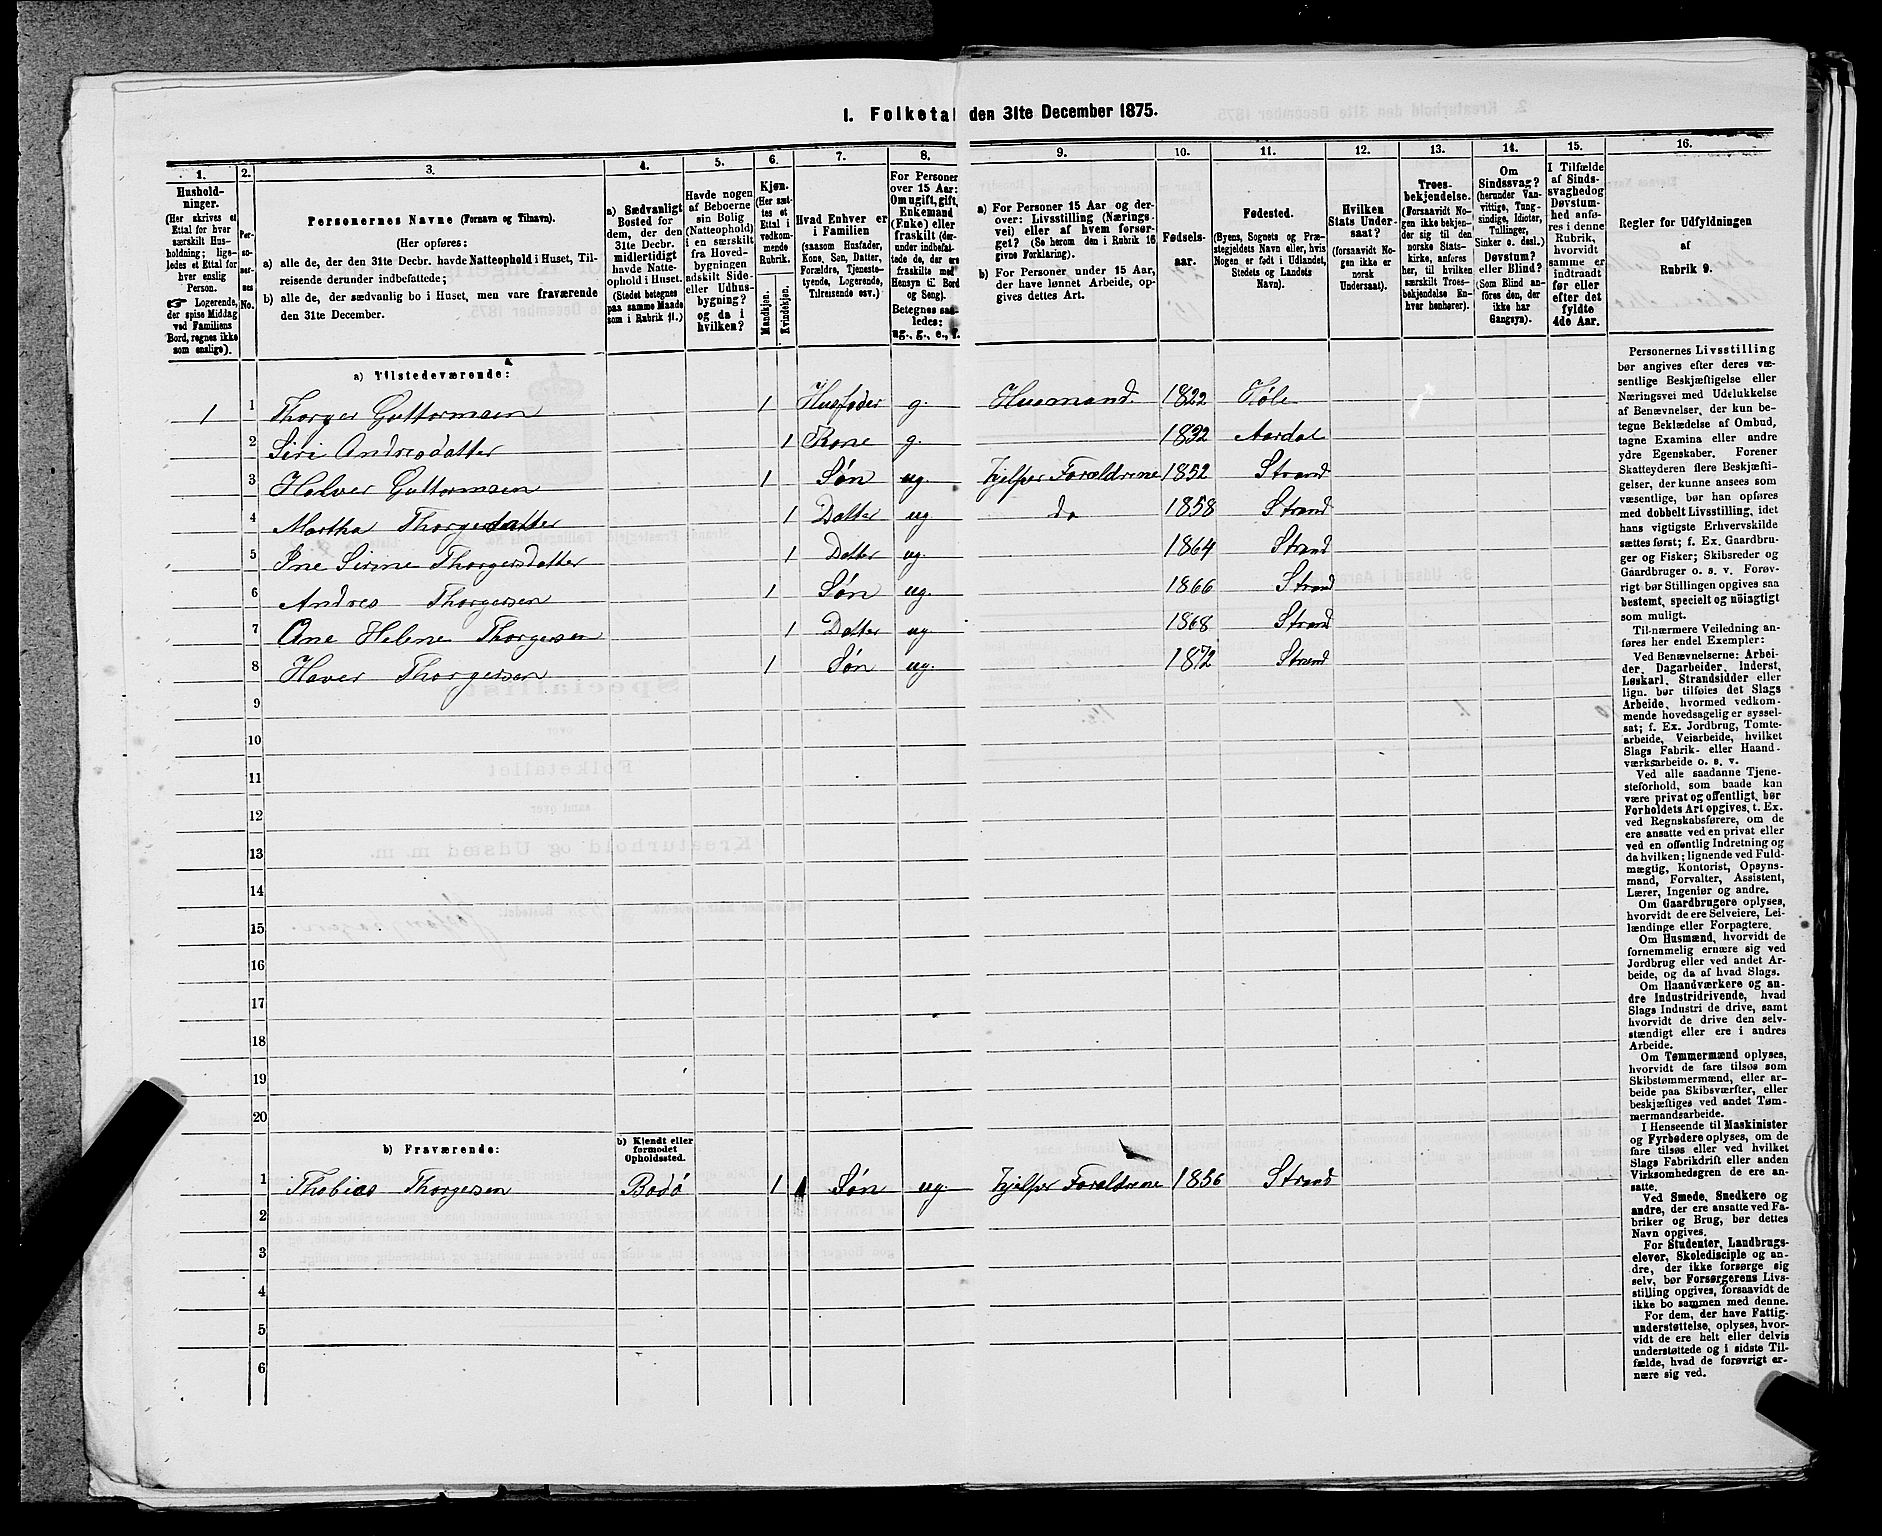 1. Folketal den 31te December 1875.
1. 2. 3. 4. 5. 6. 7. 8. 9. 10. 11. 12. 13. 14. 15. 16.
Hushold-
ninger.
(Her skrives et
Ettal for hver
særskilt Hus-
holdning; lige-
ledes et Ettal for
hver enslig
Person.
☞ Logerende,
der spise Middag
ved Familiens
Bord, regnes ikke
som enslige).
Per-
so-
ner-
nes
No.
Personernes Navne (Fornavn og Tilnavn).
(Her opføres:
a) alle de, der den 31te Decbr. havde Natteophold i Huset, Til-
reisende derunder indbefattede;
b) alle de, der sædvanlig bo i Huset, men vare fraværende
den 31te December.
a) Sædvanligt
Bosted for
dem, der den
31te Decbr.
midlertidigt
havde Natte-
ophold i Huset.
(Stedet betegnes
paa samme Maade
som i Rubrik 11.)
Havde nogen
af Beboerne
sin Bolig
(Natteophold)
i en særskilt
fra Hoved-
bygningen
adskilt Side-
eller Udhus-
bygning?
og da i
hvilken?
Kjøn.
(Her sæt-
tes et
Ettal i
vedkom-
mende
Rubrik.
Mandkjøn.
Kvindekjøn.
Hvad Enhver er
i Familien
(saasom Husfader,
Kone, Søn, Datter,
Forældre, Tjeneste-
tyende, Logerende,
Tilreisende osv.)
For Personer
over 15 Aar:
Om ugift, gift,
Enkemand
(Enke) eller
fraskilt (der-
under indbefat-
tede de, der ere
fraskilte med
Hensyn til Bord
og Seng).
Betegnes saa-
ledes:
ug., g., e., f.
a) For Personer 15 Aar og der-
over: Livsstilling (Nærings-
vei) eller af hvem forsør-
get? (Se herom den i Rubrik 16
givne Forklaring).
b) For Personer under 15 Aar,
der have lønnet Arbeide, op-
gives dettes Art.
Fødsels-
aar.
Fødested.
(Byens, Sognets og Præ-
stegjeldets Navn eller, hvis
Nogen er født i Udlandet,
Stedets og Landets
Navn).
Hvilken
Stats Under-
saat?
(forsaavidt No-
gen ikke er
norsk
Undersaat).
Troes-
bekjendelse.
(Forsaavidt No-
gen ikke bekjen-
der sig til den
norske Stats-
kirke, anføres
her, til hvilken
særskilt Troes-
bekjendelse En-
hver henhører).
Om
Sindssvag?
(herunder Van-
vittige, Tung-
sindige, Idioter,
Tullinger,
Sinker o. desl.)
Døvstum?
eller Blind?
(Som Blind an-
føres den, der
ikke har
Gangsyn).
I Tilfælde
af Sinds-
svaghed og
Døvstum-
hed anfø-
res i denne
Rubrik,
hvorvidt
samme er
indtraadt
før eller
efter det
fyldte
4de Aar.
Regler for Udfyldningen
af
Rubrik 9.
a) Tilstedeværende:
1 1 Thorger Guttormsen 1 Husfader g. Husmand. 1822 Høle
2 Siri Andreasdatter 1 Kone g. 1832 Aardal
3 Halver Guttormsen 1 Søn ug. hjelper Forældrene 1852 Strand
4 Martha Thorgersdatter 1 Datter ug do 1858 Strand
5 Ine Sirine Thorgersdatter 1 Datter ug. 1864 Strand
6 Andres Thorgersen 1 Søn ug. 1866 Strand
7 Ane Helene Thorgersen 1 Datter ug. 1868 Strand
8 Haver Thorgersen 1 Søn ug. 1872 Strand
9
10
11
12
13
14
15
16
17
18
19
20
b) Fraværende:
b) Kjendt eller
formodet
Opholdssted.
1 Thobias Thorgersen Bodø 1 Søn ug hjelper Forældrene 1856 Strand
2
3
4
5
6
Personernes Livsstilling
bør angives efter deres væ-
sentlige Beskjæftigelse eller
Næringsvei med Udelukkelse
af Benævnelser, der kun be-
tegne Beklædelse af Ombud,
tagne Examina eller andre
ydre Egenskaber. Forener
Skatteyderen flere Beskjæfti-
gelser, der kunne ansees som
væsentlige, bør han opføres
med dobbelt Livsstilling, idet
hans vigtigste Erhvervskilde
sættes først; f. Ex. Gaardbru-
ger og Fisker; Skibsreder og
Gaardbruger o. s. v. Forøv-
rigt bør Stillingen opgives saa
bestemt, specielt og nöiagtigt
som muligt.
Til nærmere Veiledning an-
føres her endel Exempler:
Ved Benævnelserne: Arbei-
der, Dagarbeider, Inderst,
Løskarl, Strandsidder eller
lign. bør tilføies det Slags
Arbeide, hvormed vedkom-
mende hovedsagelig er syssel-
sat; f. Ex. Jordbrug, Tomte-
arbeide, Veiarbeide, hvilket
Slags Fabrik- eller Haand-
værksarbeide o. s. v.
Ved alle saadanne Tjene-
steforhold, som baade kan
være privat og offentligt, bør
Forholdets Art opgives, t. Ex.
ved Regnskabsførere, om de
ere ansatte ved en privat eller
ved en offentlig Indretning og
da hvilken; lignende ved Fuld-
mægtig, Kontorist, Opsyns-
mand, Forvalter, Assistent,
Lærer, Ingeniør og andre.
Om Gaardbrugere oplyses,
hvorvidt de ere Selveiere, Lei-
lændinge eller Forpagtere.
Om Husmænd, hvorvidt de
fornemmelig ernære sig ved
Jordbrug eller ved andet Ar-
beide, og da af hvad Slags.
Om Haandværkere og an-
dre Industridrivende, hvad
Slags Industri de drive, samt
hvorvidt de drive den selv-
stændigt eller ere i andres
Arbeide.
Om Tømmermænd oplyses,
hvorvidt de fare tilsøs som
Skibstømmermænd, eller ar-
beide paa Skibsværfter, eller
beskjæftiges ved andet Tøm-
mermandsarbeide.
I Henseende til Maskinister
og Fyrbødere oplyses, om de
fare tilsøs eller ved hvilket
Slags Fabrikdrift eller anden
Virksomhedsgren de ere an-
satte.
Ved Smede, Snedkere og
andre, der ere ansatte ved Fa-
briker og Brug, bør dettes
Navn opgives.
For Studenter, Landbrugs-
elever, Skoledisciple og an-
dre, der ikke forsørge sig
selv, bør Forsørgerens Livs-
stilling opgives, forsaavidt de
ikke bo sammen med denne.
For dem, der have Fattig-
understøttelse, oplyses, hvor-
vidt de ere helt eller delvis
understøttede og i sidste Til-
fælde, hvad de forøvrigt er-
nære sig ved.